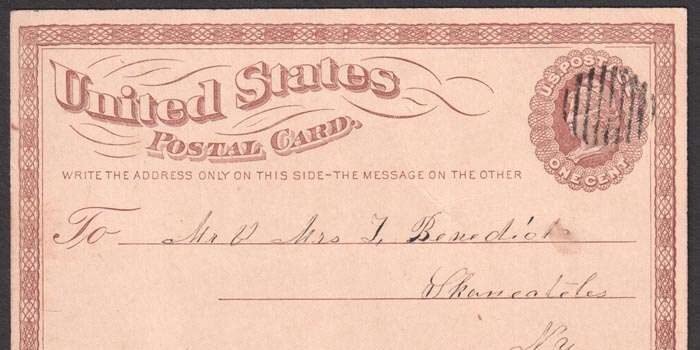 United States
POSTAL CARD.
U.S. POST
ONE CENT
WRITE THE ADDRESS ONLY ON THIS SIDE–THE MESSAGE ON THE OTHER
To Mr & Mrs I. Benedict
Skaneateles
N.y